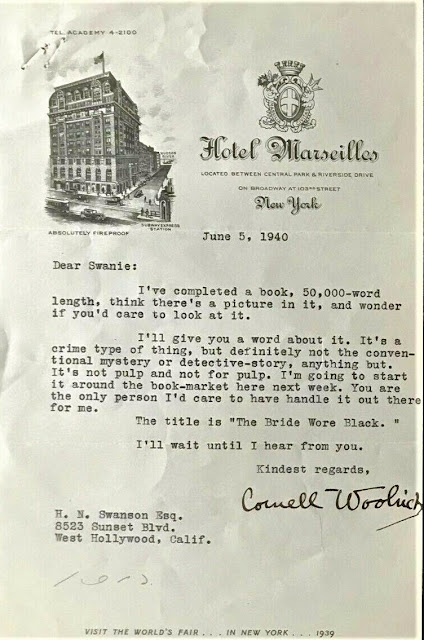 TEL. ACADEMY 4-2100
Hotel Marseilles
LOCATED BETWEEN CENTRAL PARK & RIVERSIDE DRIVE
ON BROADWAY AT 103RD STREET
New York
SUBWAY EXPRESS
STATION
ABSOLUTELY FIREPROOF
June 5, 1940
Dear Swanie:
I've completed a book, 50,000-word
length, think there's a picture in it, and wonder
if you'd care to look at it.
I'll give you a word about it. It's a
crime type of thing, but definitely not the conven-
tional mystery or detective-story, anything but.
It's not pulp and not for pulp. I'm going to start
it around the book-market here next week. You are
the only person I'd care to have handle it out there
for me.
The title is "The Bride Wore Black. "
I'll wait until I hear from you.
Kindest regards,
Cornell Woolrich
H. N. Swanson Esq.
8523 Sunset Blvd.
West Hollywood, Calif.
VISIT THE WORLD'S FAIR . . . IN NEW YORK . . . 1939